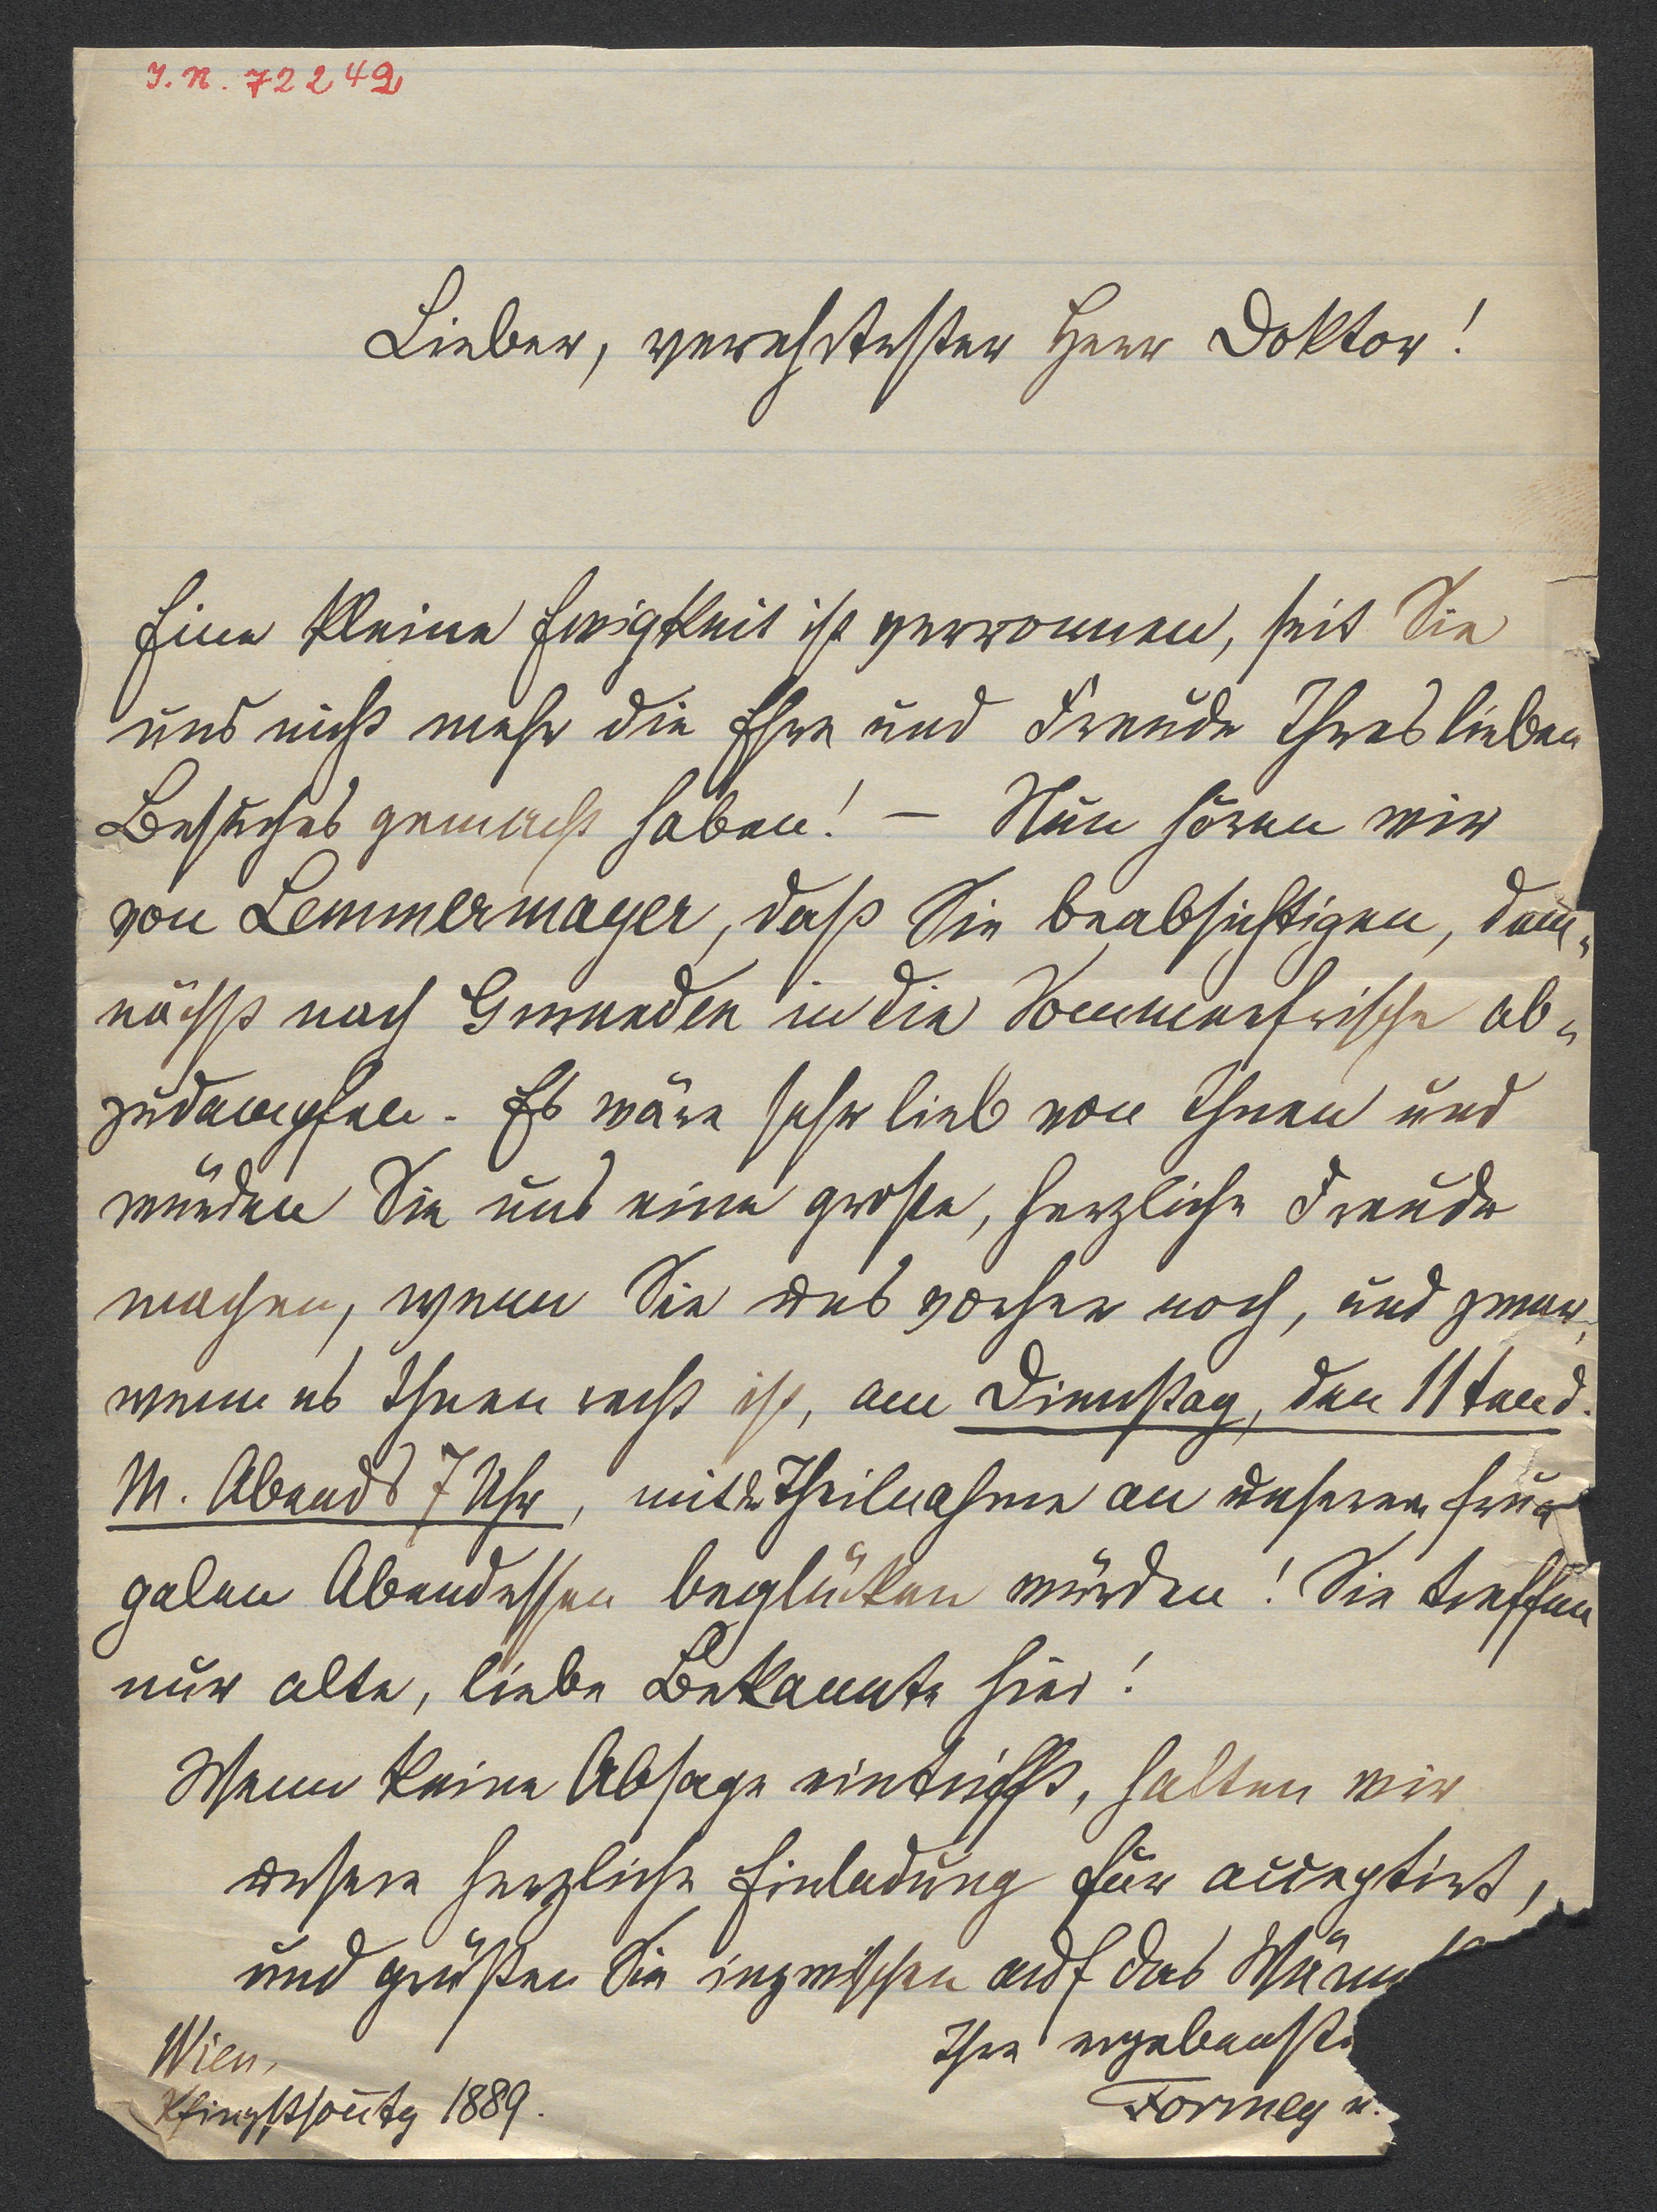 I. N. 72242
Lieber, verehrtester Herr Doktor!
Eine kleine Ewigkeit ist verronnen, seit Sie
uns nicht mehr die Ehre und Freude Ihres lieben
Besuches gemacht haben! — Nun hören wir
von Lemmermayer, daß Sie beabsichtigen, dem-
nächst nach Gmunden in die Sommerfrische ab-
zudampfen. Es wäre sehr lieb von Ihnen und
würden Sie uns eine große, herzliche Freude
machen, wenn Sie uns vorher noch, und zwar,
wenn es Ihnen recht ist, am Dienstag, den 11ten d.
M. Abends 7 Uhr, mit Theilnahme an unserem fru-
galen Abendessen beglücken würden! Sie treffen
nur alte, liebe Bekannte hier!
Wenn keine Absage eintrifft, halten wir
unsere herzliche Einladung für acceptirt,
und grüßen Sie inzwischen auf das Wärm
Ihre ergebenste
Wien,
Formey u.
Pfingstsontg 1889.